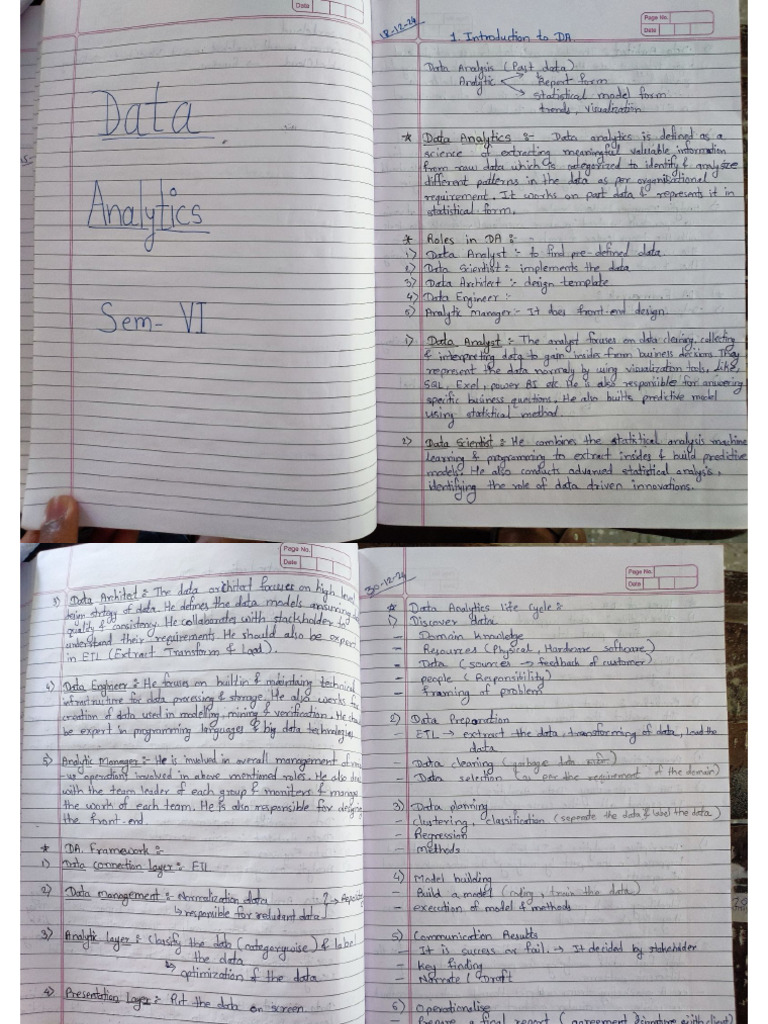 Date
Data
Analytics
Sem- VI
Page No.
Date
18-12-24
1. Introduction to DA.
Data Analysis (Past data)
Analytic → Report form
→ statistical model form
trends, visualization
* Data Analytics :- Data analytics is defined as a
science of extracting meaningful valuable information
from raw data which is categorized to identify & analyze
different patterns in the data as per organisational
requirement. It works on past data & represents it in
statistical form.
* Roles in DA :-
1) Data Analyst :- to find pre-defined data
2) Data Scientist :- implements the data
3) Data Architect :- design template
4) Data Engineer :-
5) Analytic Manager :- It does front-end design.
1) Data Analyst :- The analyst focuses on data clearing, collecting
& interpreting data to gain insides from business decisions. They
represent the data normaly by using visualization tools, Like,
SQL, Exel, power BI etc. He is also responsible for answering
specific business questions. He also builts predictive model
using statistical method.
2) Data Scientist :- He combines the statistical analysis machine
learning & programming to extract insides & build predictive
models. He also conducts advanced statistical analysis,
identifying the role of data driven innovations.
Page No.
Date
3) Data Architet :- The data architat focuses on high level
design strtegy of data. He defines the data models assuming
quality & consistency. He collaborates with stackholder to
understand their requirements He should also be expert
in ETL (Extract Transform & Load).
4) Data Engineer :- He focuses on builtin & maintaing technical
infrastruitre for data procesing & storage. He also works for
creation of data used in modelling, mining & verification. He
be expert in programming languages & big data technologies.
5) Analytic Manager :- He is involved in overall management of
operations involved in above mentioned roles. He also
with the team leader of each group & moniters & manage
the work of each team. He is also responsible for
the front-end.
* DA. Framework :-
1) Data connection layer :- ETL
2) Data management :- Normalization data
↳ responsible for redudant data
3) Analytic layer :- Clasify the data (categorywise) & label
the data
↳ optimization of the data
4) Presentation Layer :- Put the data on screen
Page No.
Date
30-12-24
* Data Analytics life Cycle :-
1) Discover data
- Domain knowledge
- Resources (Physical, Hardware software)
- Data (sources → feedback of customer)
- people (Responsibility)
- framing of problem
2) Data Preparation
- ETL → extract the data, transforming of data, load the
data
- Data clearing (garbage data)
- Data selection (as per the requirement of the domain)
3) Data planning
- clustering, classification (seperate the data & label the data)
- Regression
- methods
4) Model building
- Build a model (coding, train the data)
- execution of model & methods
5) Communication Results
- It is success or fail. → It decided by stakeholder
- key finding
- Narrate / Draft
6) Operationalise
- Prepare a final report (agreement signature with client)